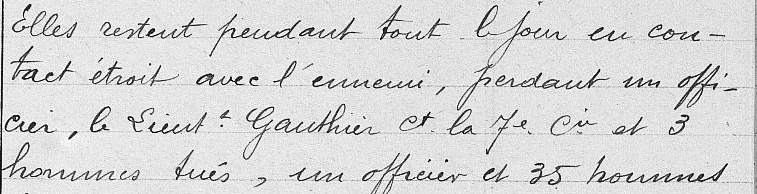 Elles restent pendant tout le jour en con-
tact étroit avec l'ennemi, perdant un offi-
cier, le Lieutt Gauthier Ct la 7e Cie et 3
hommes tués, un officier et 35 hommes